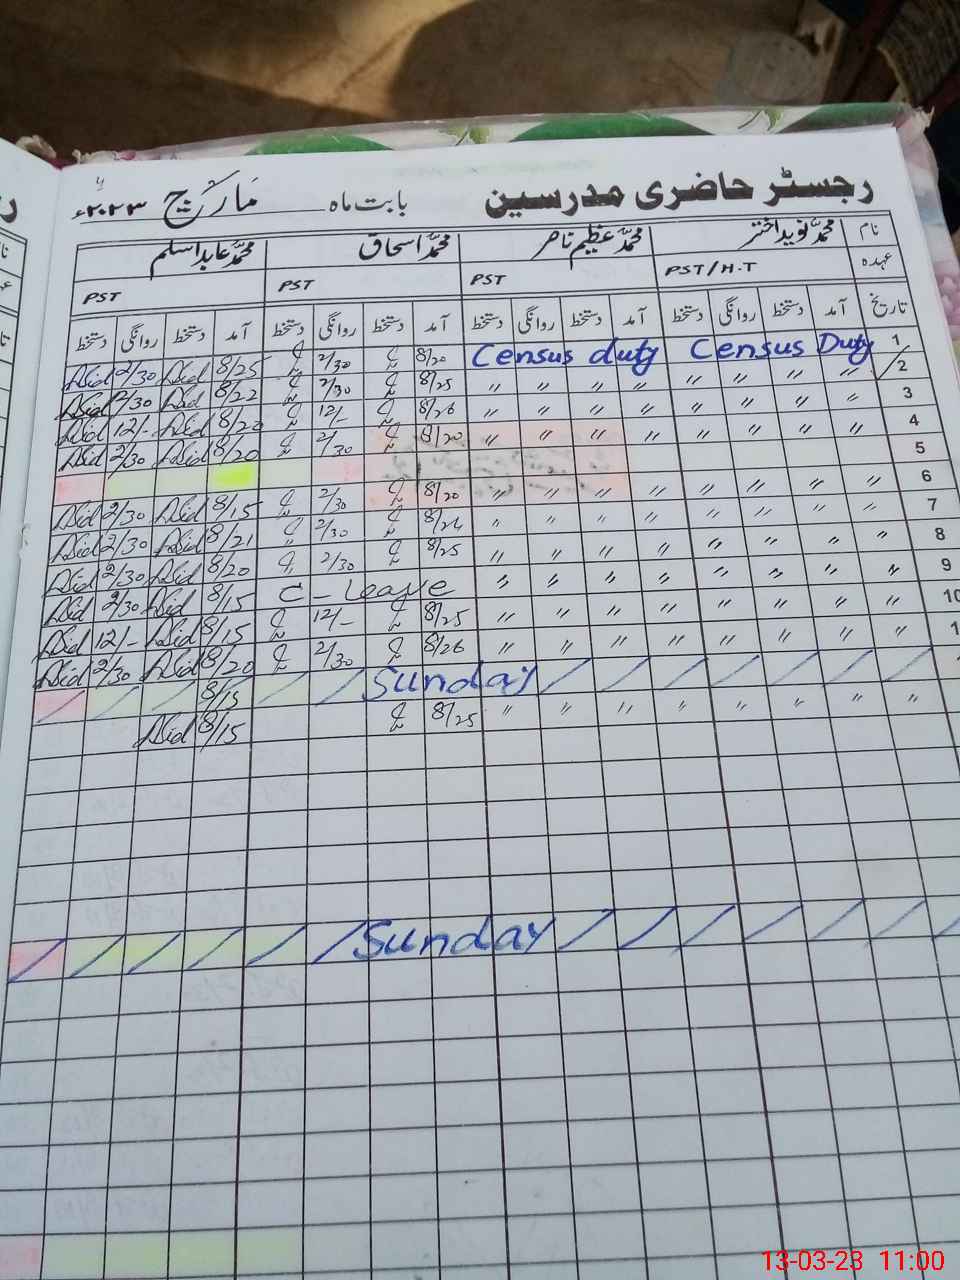 رجسٹر حاضری مدرسین بابت ماہ مارچ ۲۰۲۳ء
نام محمد نوید اختر محمد عظیم ناصر محمد اسحاق محمد عابد اسلم
عہدہ PST/H.T PST PST PST
تاریخ آمد دستخط روانگی دستخط آمد دستخط روانگی دستخط آمد دستخط روانگی دستخط آمد دستخط روانگی دستخط
1 Census Duty Census duty 8/20 2/30 8/25 Abid 2/30 Abid
2 〃 〃 〃 〃 〃 〃 〃 8/25 2/30 8/22 Abid 2/30 Abid
3 〃 〃 〃 〃 〃 〃 〃 8/26 12/- 8/20 Abid 12/- Abid
4 〃 〃 〃 〃 〃 〃 〃 8/20 2/30 8/20 Abid 2/30 Abid
5
6 〃 〃 〃 〃 〃 〃 〃 8/20 2/30 8/15 Abid 2/30 Abid
7 〃 〃 〃 〃 〃 〃 〃 8/24 2/30 8/21 Abid 2/30 Abid
8 〃 〃 〃 〃 〃 〃 〃 8/25 2/30 8/20 Abid 2/30 Abid
9 〃 〃 〃 〃 〃 〃 〃 C-Leave 8/15 Abid 2/30 Abid
10 〃 〃 〃 〃 〃 〃 〃 8/25 12/- 8/15 Abid 12/- Abid
1 〃 〃 〃 〃 〃 〃 〃 8/26 2/30 8/20 Abid 2/30 Abid
Sunday 8/15
〃 〃 〃 〃 〃 〃 〃 8/25 8/15 Abid
Sunday
13-03-23 11:00